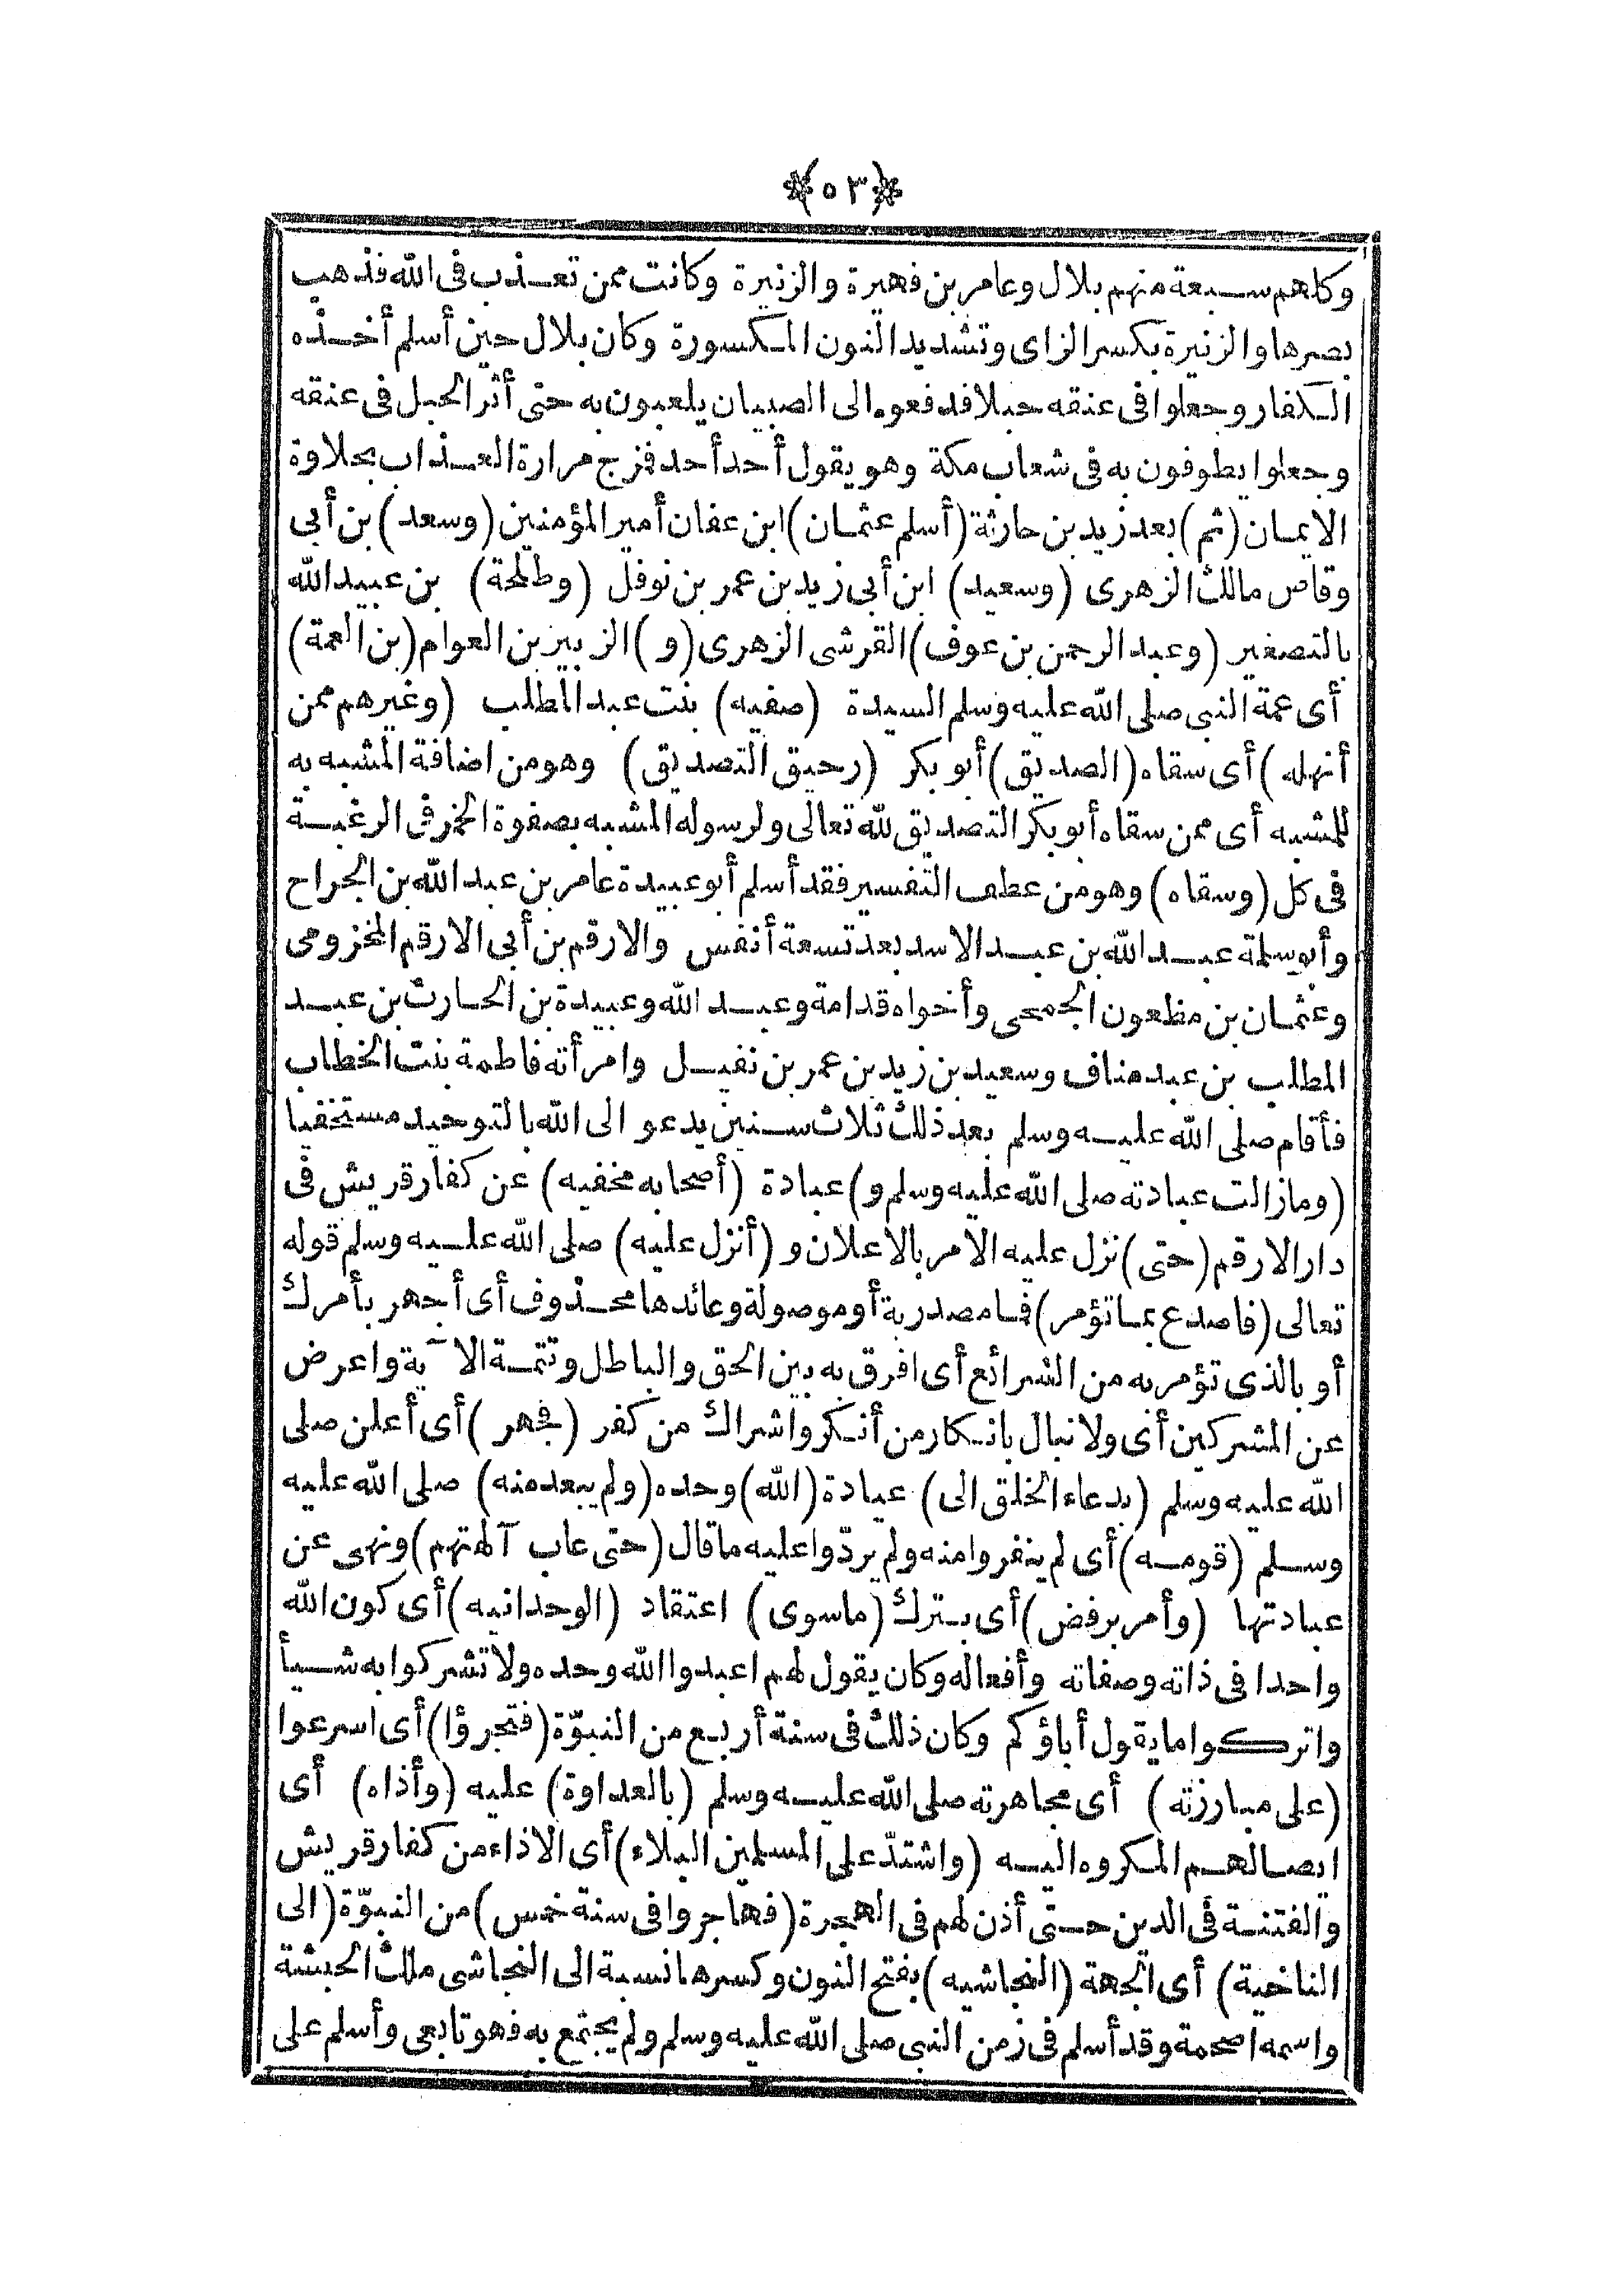 ٥٣
وكلهم سبعة منهم بلال وعامر بن فهيرة والزنيرة وكانت ممن تعذب فى الله فذهب
بصرها والزنيرة بكسر الزاى وتشديد النون المكسورة وكان بلال حين أسلم أخذه
الكفار وجعلوا فى عنقه حبلا فدفعوه الى الصبيان يلعبون به حتى أثر الحبل فى عنقه
وجعلوا يطوفون به فى شعاب مكة وهو يقول أحد أحد فمزج مرارة العذاب بحلاوة
الايمان (ثم) بعد زيد بن حارثة (أسلم عثمان) ابن عفان أمير المؤمنين (وسعد) بن أبى
وقاص مالك الزهرى (وسعيد) ابن أبى زيد بن عمر بن نوفل (وطلحة) بن عبيد الله
بالتصغير (وعبد الرحمن بن عوف) القرشى الزهرى (و) الزبير بن العوام (بن العمة)
أى عمة النبى صلى الله عليه وسلم السيدة (صفيه) بنت عبد المطلب (وغيرهم ممن
أنهله) أى سقاه (الصديق) أبو بكر (رحيق التصديق) وهو من اضافة المشبه به
للمشبه أى ممن سقاه أبو بكر التصديق لله تعالى ولرسوله المشبه بصفوة الخمر فى الرغبة
فى كل (وسقاه) وهو من عطف التفسير فقد أسلم أبو عبيدة عامر بن عبد الله بن الجراح
وأبو سلمة عبد الله بن عبد الاسد بعد تسعة أنفس والارقم بن أبى الارقم المخزومى
وعثمان بن مظعون الجمحى وأخواه قدامة وعبد الله وعبيدة بن الحارث بن عبد
المطلب بن عبد مناف وسعيد بن زيد بن عمر بن نفيل وامرأته فاطمة بنت الخطاب
فأقام صلى الله عليه وسلم بعد ذلك ثلاث سنين يدعو الى الله بالتوحيد مستخفيا
(وما زالت عبادته صلى الله عليه وسلم و) عبادة (أصحابه مخفيه) عن كفار قريش فى
دار الارقم (حتى) نزل عليه الامر بالاعلان و (أنزل عليه) صلى الله عليه وسلم قوله
تعالى (فاصدع بما تؤمر) فما مصدرية أو موصولة وعائدها محذوف أى أجهر بأمرك
أو بالذى تؤمر به من الشرائع أى افرق به بين الحق والباطل وتتمة الآية واعرض
عن المشركين أى ولا نبال بانكار من أنكر واشراك من كفر (فجهر) أى أعلن صلى
الله عليه وسلم (بدعاء الخلق الى) عبادة (الله) وحده (ولم يبعد منه) صلى الله عليه
وسلم (قومه) أى لم ينفروا منه ولم يردّوا عليه ما قال (حتى عاب آلهتهم) ونهى عن
عبادتها (وأمر برفض) أى بترك (ما سوى) اعتقاد (الوحدانيه) أى كون الله
واحدا فى ذاته وصفاته وأفعاله وكان يقول لهم اعبدوا الله وحده ولا تشركوا به شيأ
واتركوا ما يقول أباؤكم وكان ذلك فى سنة أربع من النبوّة (فتجرؤا) أى اسرعوا
(على مبارزته) أى مجاهرته صلى الله عليه وسلم (بالعداوة) عليه (وأذاه) أى
ايصالهم المكروه اليه (واشتدّ على المسلمين البلاء) أى الاذاء من كفار قريش
والفتنة فى الدين حتى أذن لهم فى الهجرة (فهاجروا فى سنة خمس) من النبوّة (الى
الناحية) أى الجهة (النجاشيه) بفتح النون وكسرها نسبة الى النجاشى ملك الحبشة
واسمه اصحمة وقد أسلم فى زمن النبى صلى الله عليه وسلم ولم يجتمع به فهو تابعى وأسلم على